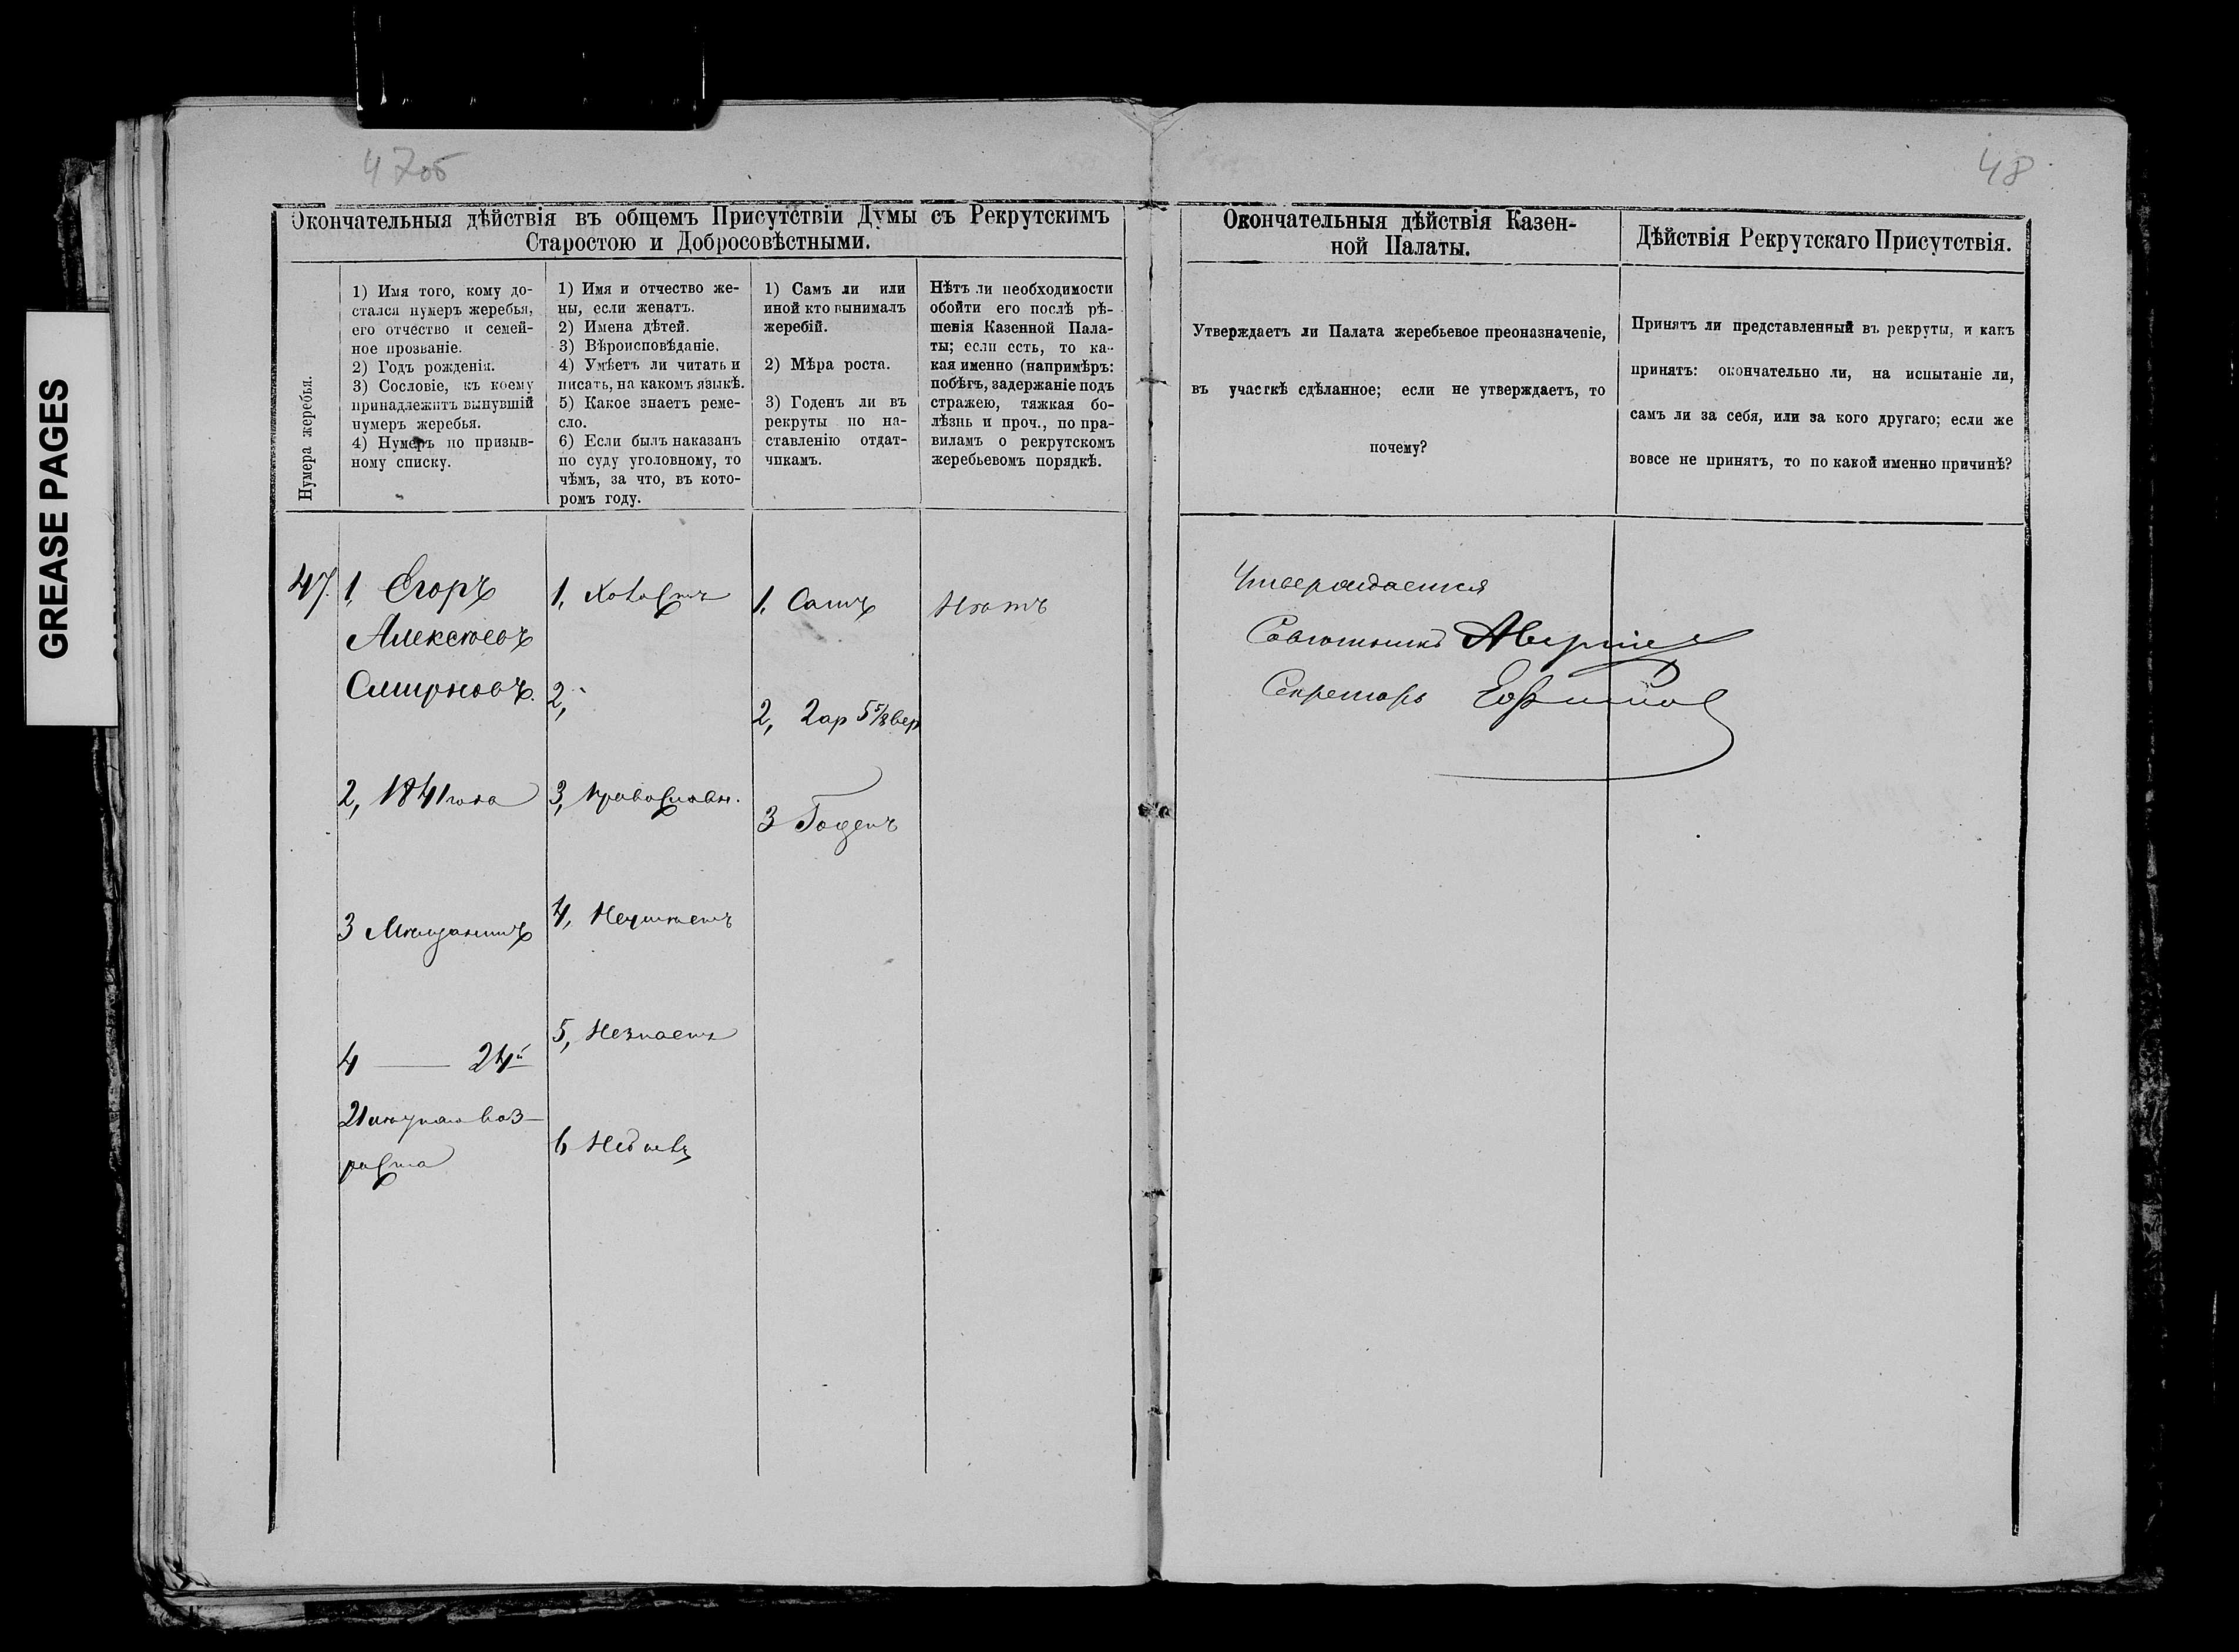 GREASE PAGES
47об
48
Окончательныя дѣйствія въ общемъ Присутствіи Думы съ Рекрутскимъ
Старостою и Добросовѣстными.
Нумера жеребья.
1) Имя того, кому до-
стался нумеръ жеребья,
его отчество и семей-
ное прозваніе.
2) Годъ рожденія.
3) Сословіе, къ коему
принадлежитъ вынувшій
нумеръ жеребья.
4) Нумеръ по призыв-
ному списку.
1) Имя и отчество же-
ны, если женатъ.
2) Имена дѣтей.
3) Вѣроисповѣданіе.
4) Умѣетъ ли читать и
писать, на какомъ языкѣ.
5) Какое знаетъ реме-
сло.
6) Если былъ наказанъ
по суду уголовному, то
чѣмъ, за что, въ кото-
ромъ году.
1) Самъ ли или
иной кто вынималъ
жеребій.
2) Мѣра роста.
3) Годенъ ли въ
рекруты по на-
ставленію отдат-
чикамъ.
Нѣтъ ли необходимости
обойти его послѣ рѣ-
шенія Казенной Пала-
ты; если есть, то ка-
кая именно (напримѣръ:
побѣгъ, задержаніе подъ
стражею, тяжкая бо-
лѣзнь и проч., по пра-
виламъ о рекрутскомъ
жеребьевомъ порядкѣ.
47.
1, Егоръ
Алексѣевъ
Смирновъ.
2, 1841 года
3 Мѣщанинъ
4 — 24й
21 лѣтняго воз-
раста
1, Холостъ
2, -
3, Православн.
4, Неумѣетъ
5, Незнаетъ
6 Небылъ
1, Самъ
2, 2 ар 5 5/8 вер
3 Годенъ
Нѣтъ
Окончательныя дѣйствія Казен-
ной Палаты.
Утверждаетъ ли Палата жеребьевое преоназначеніе,
въ участкѣ сдѣланное; если не утверждаетъ, то
почему?
Утверждается
Совѣтникъ
Секретарь Ефимов
Дѣйствія Рекрутскаго Присутствія.
Принятъ ли представленный въ рекруты, и какъ
принятъ: окончательно ли, на испытаніе ли,
самъ ли за себя, или за кого другаго; если же
вовсе не принятъ, то по какой именно причинѣ?